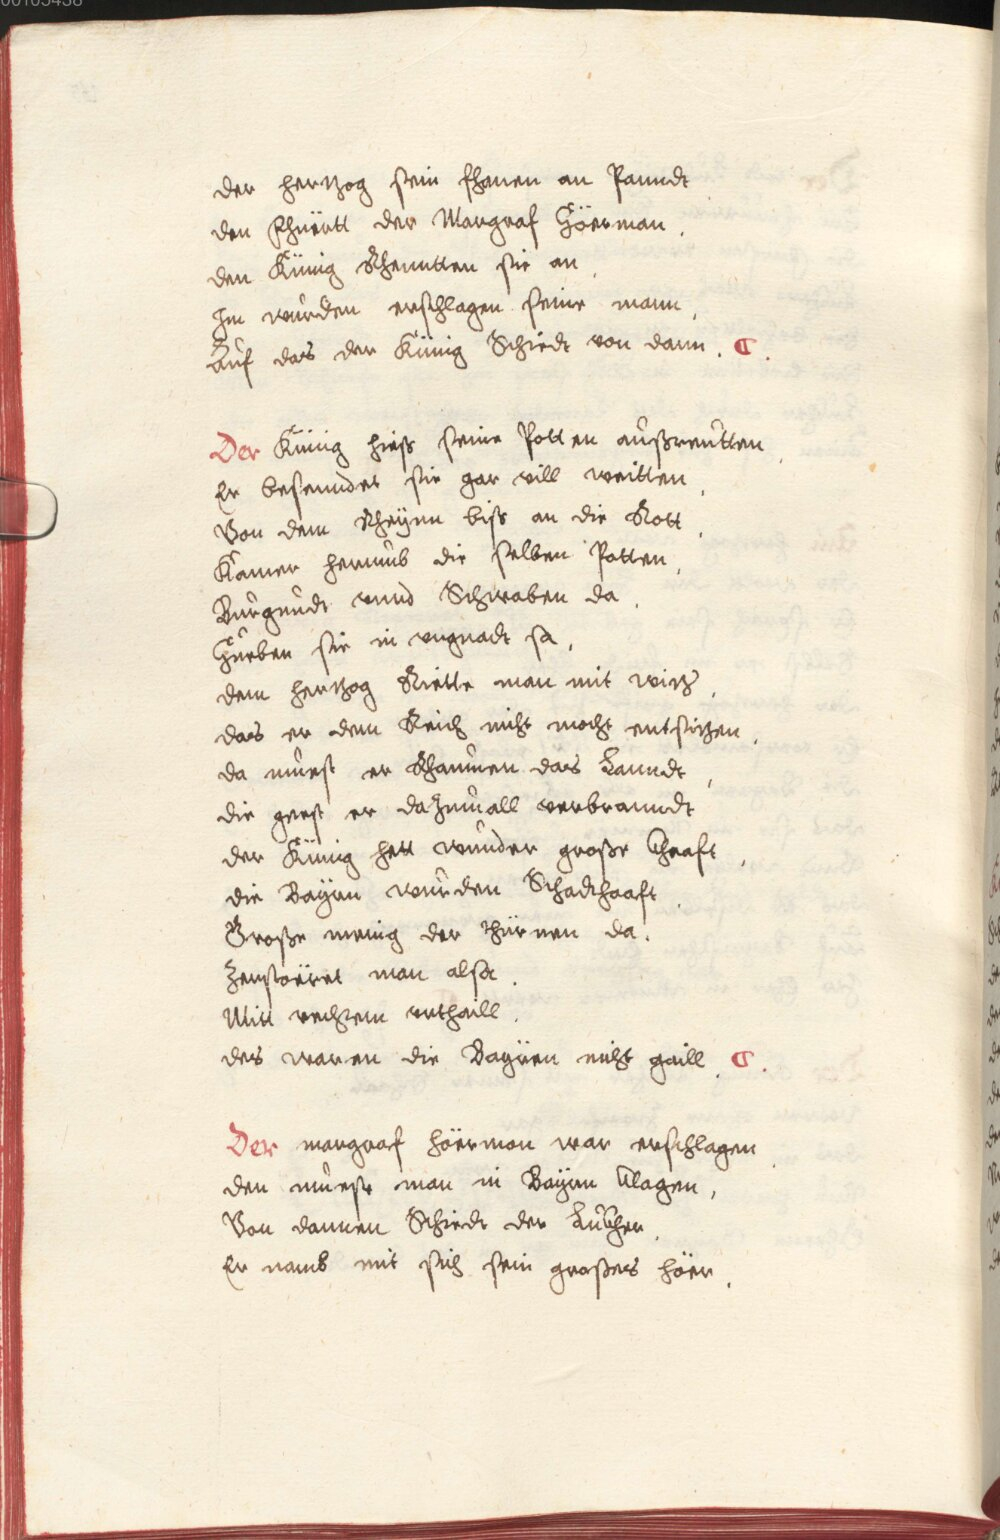 00105438
der hertzog sein fhanen an Panndt
den fhüertt der Margraf Höerman.
den Künig Khanntten sie an.
Im wurden erschlagen seine mann,
Auf das der Künig Schiedt von dann. C.
Der Künig hieß seine Potten außreütten.
Er besenndet sie gar vill weitten,
Von dem Rheÿnn biss an die Rott,
Kamen herumb die selben Potten,
Burgundt vnnd Schwaben da.
Hueben sie in vngnadt sa,
dem hertzog Riette man mit witz,
das er dem Reich niht moht entsitzen.
da muest er Rhaumen das Lanndt,
die geest er dazumall verbranndt
der Künig hett wunder große Chraft,
die Baÿrn wurden Schadthaaft.
Große menig der thürnen da.
Zerstoëret man alsa.
Mitt rechtem vrthaill.
des waren die Baÿren niht gaill. C.
Der margraf höerman war erschlagen.
den mueste man in Baÿrn Clagen,
Von dannen Schiedt der Luther.
Er namb mit sich sein großes höer.